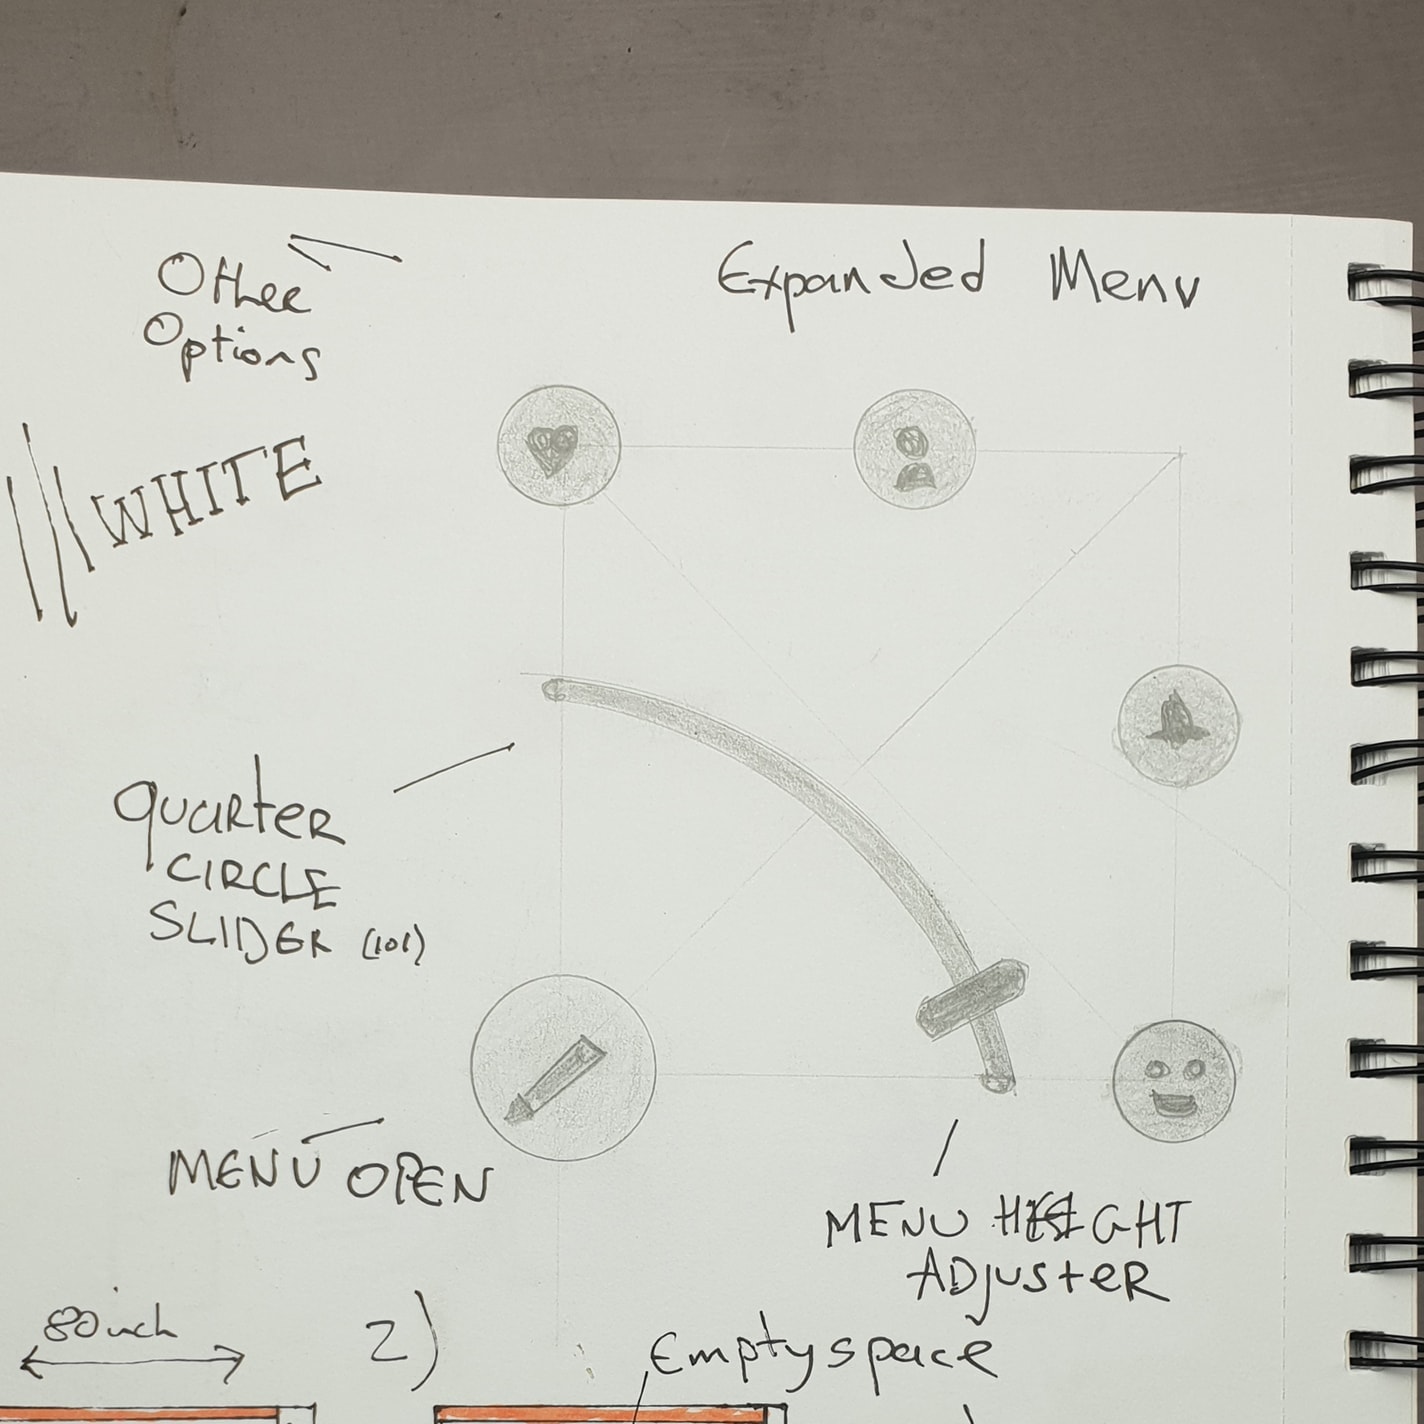 Other
Options
Expanded Menu
WHITE
quarter
CIRCLE
SLIDER (101)
MENU OPEN
MENU HEIGHT
ADjusteR
80inch
2)
Empty space